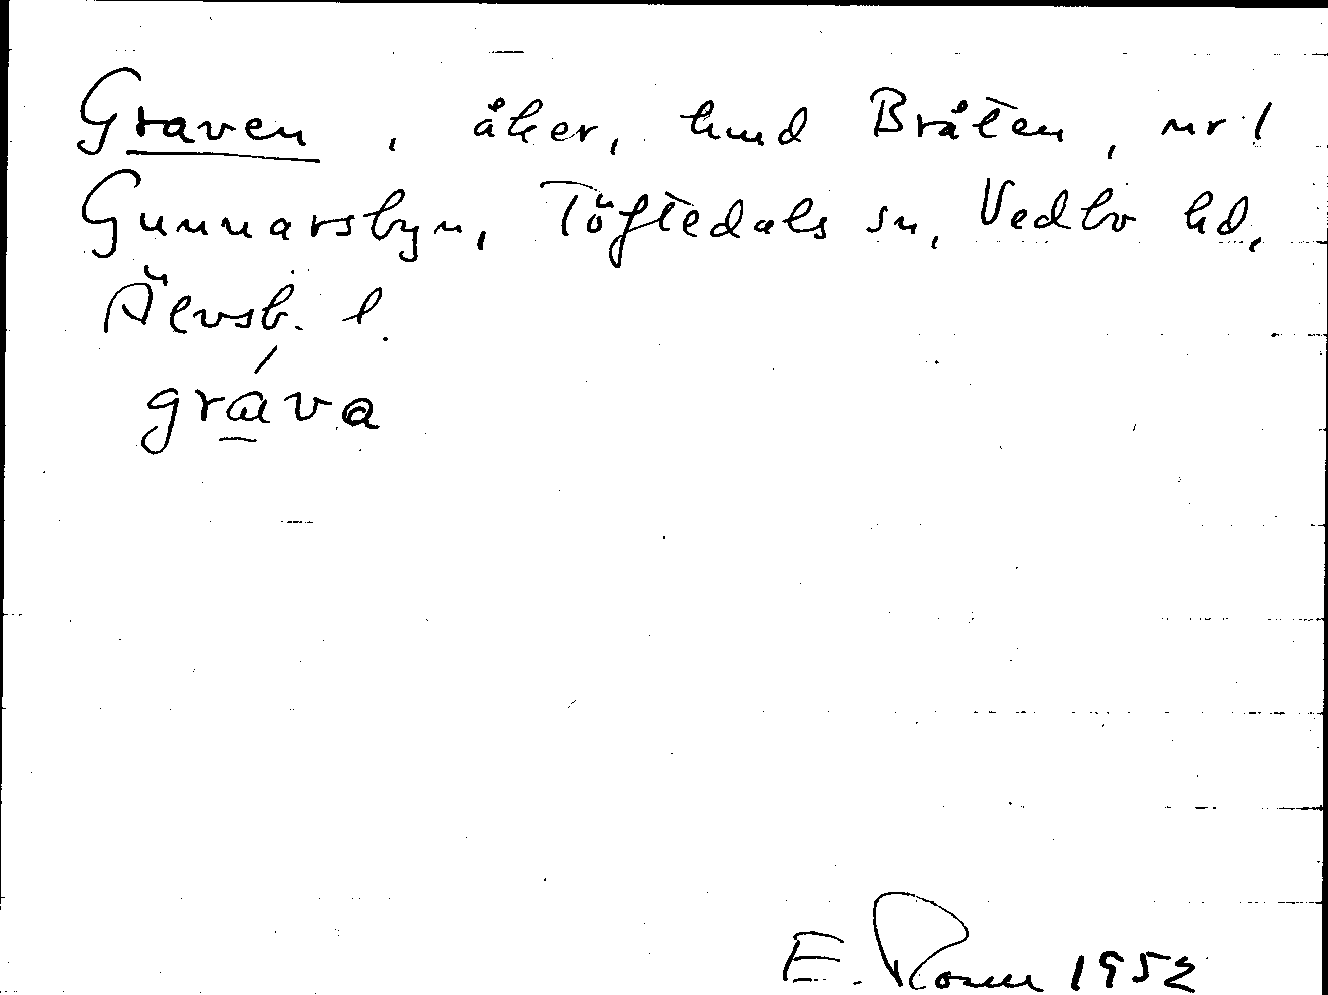 Graven, åker, hmd Bråten, nr 1
Gunnarsbyn, Töftedals sn, Vedbo hd,
Älvsb. l.
gráva
E. Rosell 1952